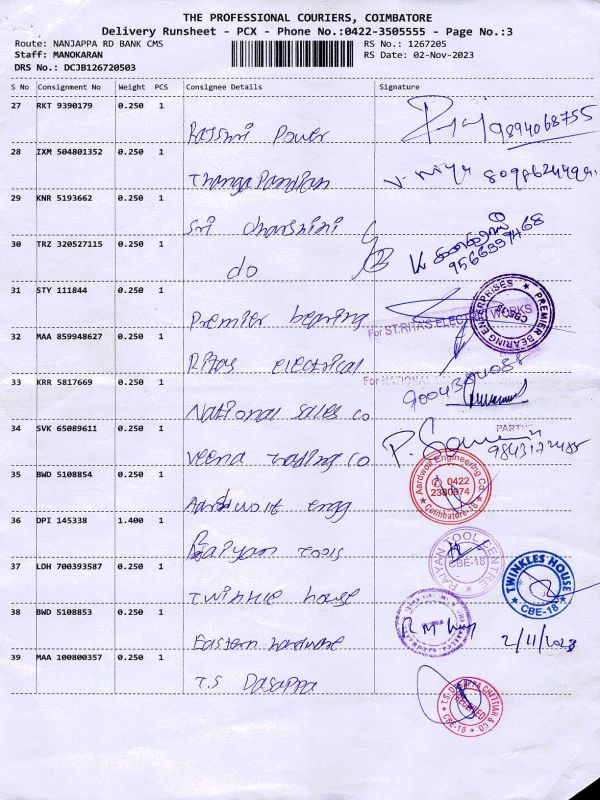 THE PROFESSIONAL COURIERS, COIMBATORE
Delivery Runsheet - PCX - Phone No.:0422-3505555 - Page No.:3
Route: NANJAPPA RD BANK CMS RS No.: 1267205
Staff: MANOKARAN RS Date: 02-Nov-2023
DRS No.: DCJB126720503
S No Consignment No Weight PCS Consignee Details Signature
27 RKT 9390179 0.250 1
Rajshri Power 9894068755
28 IXM 504801352 0.250 1
Thanga Pandian
29 KNR 5193662 0.250 1
Sri Dharshini
30 TRZ 320527115 0.250 1
do 9566397468
31 STY 111844 0.250 1
Premier bearing
PREMIER BEARING ENTERPRISES
CBE-18
For ST.RITA'S ELECTRIC WORKS
32 MAA 859948627 0.250 1
Ritas electrical
For NATIONAL
33 KRR 5817669 0.250 1
National sales co
34 SVK 65089611 0.250 1
Veena trading co 9843172485
35 BWD 5108854 0.250 1
Aardwolf engg
Aardwolf Engineering Co.
0422
2380974
Coimbatore-18
36 DPI 145338 1.400 1
Rajpyan tools
TOOL CENTRE
CBE-18
37 LDH 700393587 0.250 1
Twinkle house
TWINKLES HOUSE
CBE-18
38 BWD 5108853 0.250 1
Eastern hardware 2/11/2023
39 MAA 100800357 0.250 1
T.S Dasappa
T.S. DASAPPA CHETTIAR & CO
RECEIVED
CBE-18